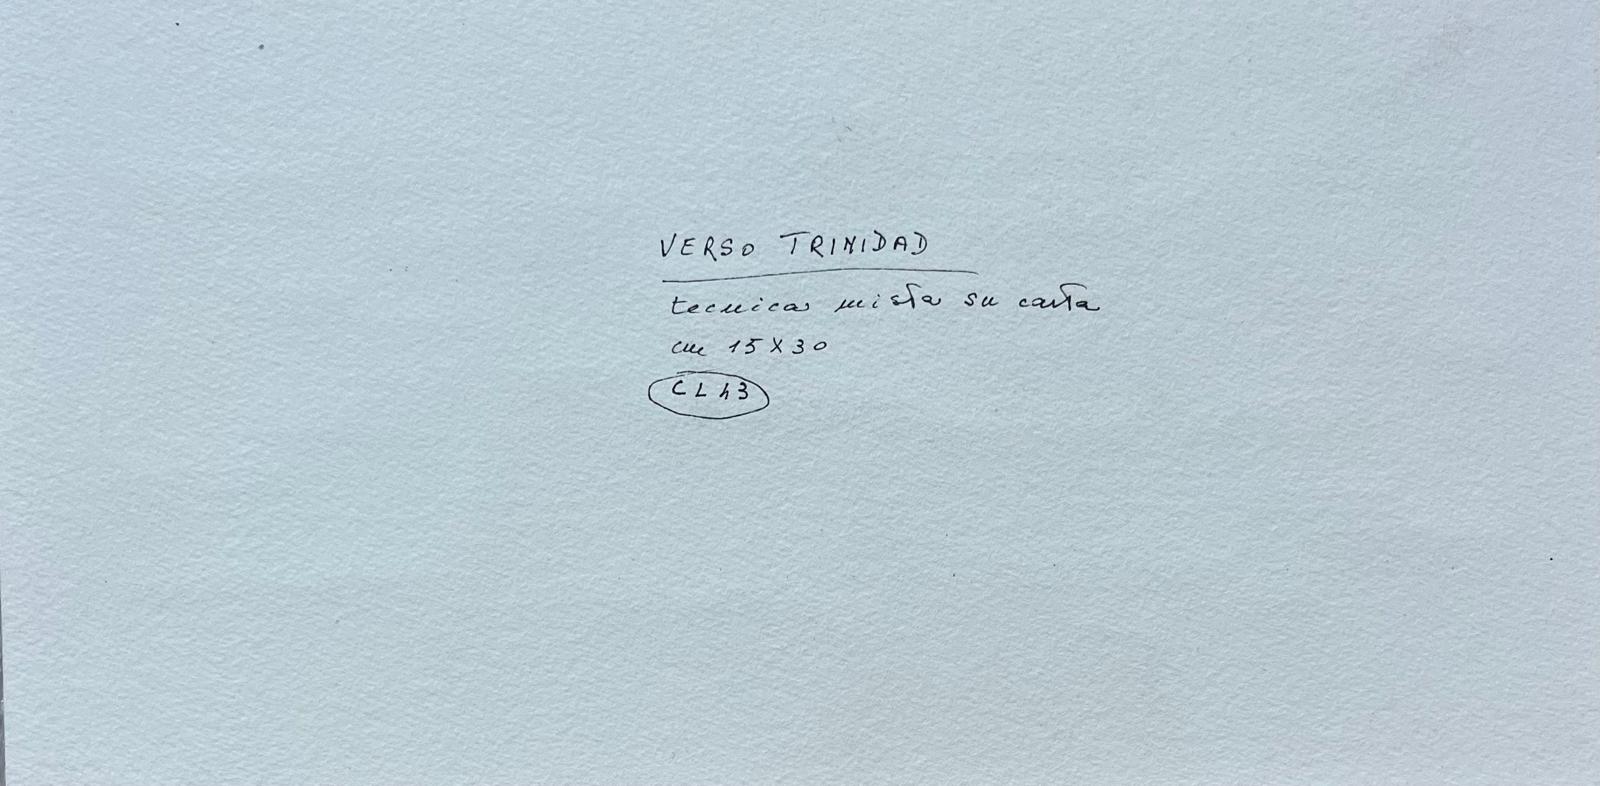 VERSO TRINIDAD
tecnica mista su carta
cm 15X30
CL43